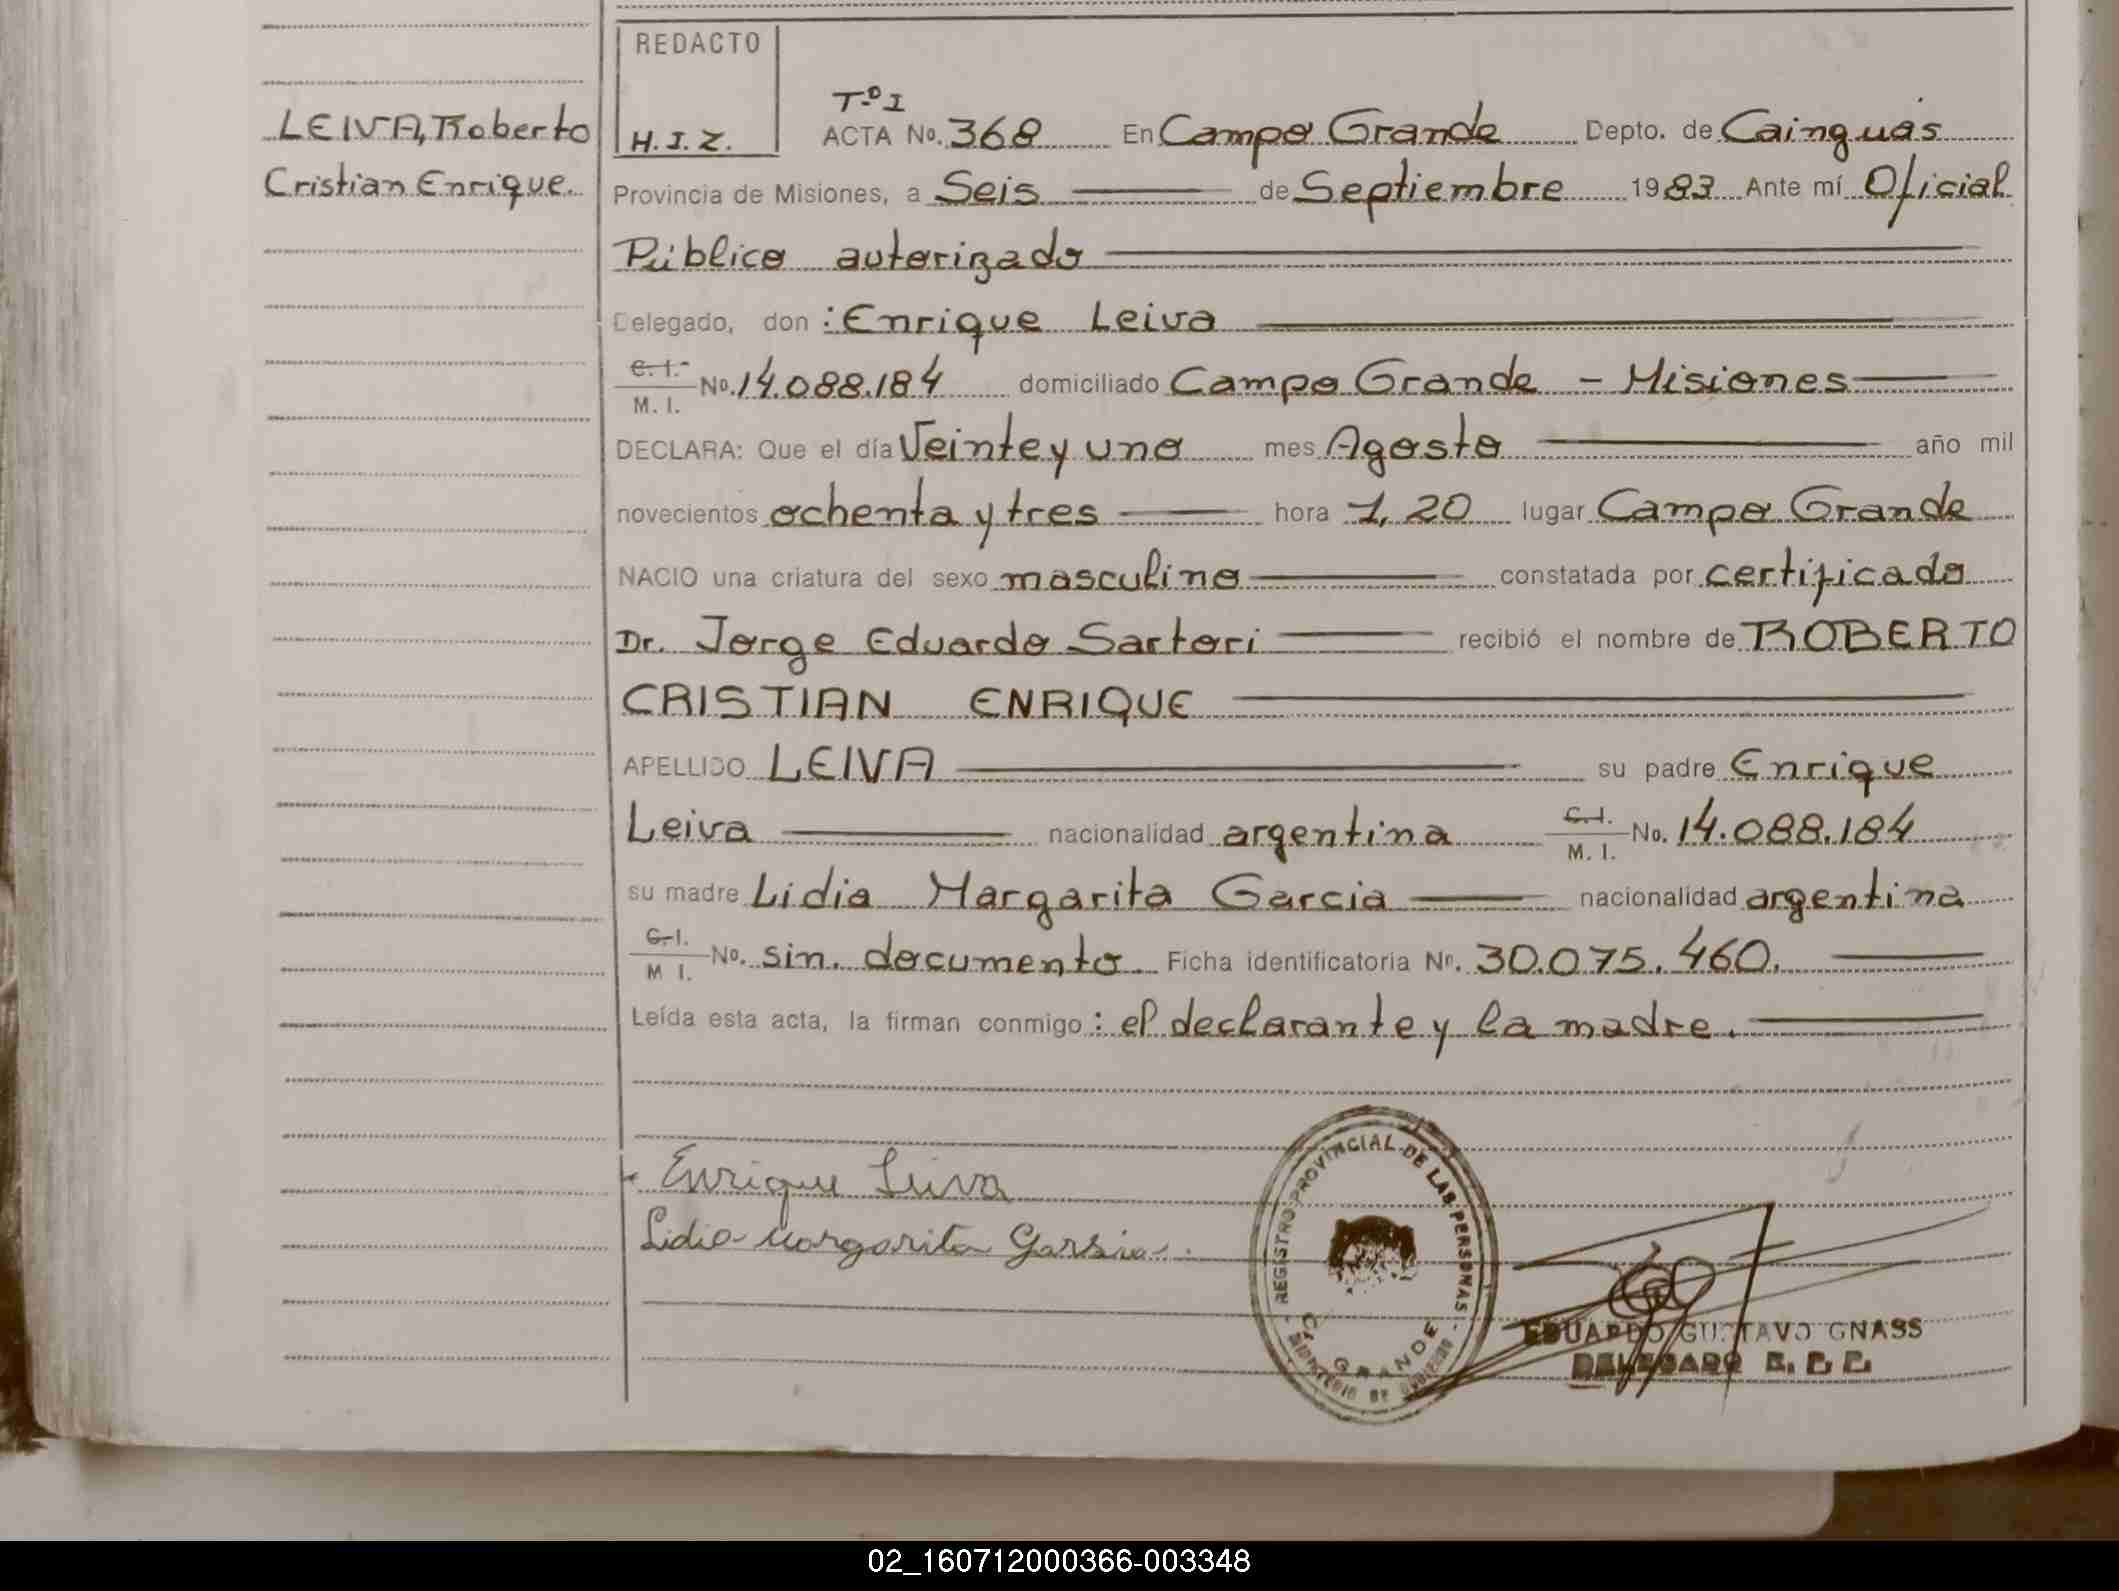 LEIVA, Roberto
Cristian Enrique.
REDACTO
H.I.Z.
Tº I
ACTA No. 368 En Campo Grande Depto. de Cainguás
Provincia de Misiones, a Seis de Septiembre 1983 Ante mí Oficial
Público autorizado
Delegado, don: Enrique Leiva
C.I. M.I. No. 14.088.184 domiciliado Campo Grande - Misiones
DECLARA: Que el día Veinte y uno mes Agosto año mil
novecientos ochenta y tres hora 1,20 lugar Campo Grande
NACIO una criatura del sexo masculino constatada por certificado
Dr. Jorge Eduardo Sartori recibió el nombre de ROBERTO
CRISTIAN ENRIQUE
APELLIDO LEIVA su padre Enrique
Leiva nacionalidad argentina C.I. M.I. No. 14.088.184
su madre Lidia Margarita Garcia nacionalidad argentina
C.I. M I. No. sin documento. Ficha identificatoria No. 30.075.460.
Leída esta acta, la firman conmigo: el declarante y la madre.
Enrique Leiva
Lidia Margarita Garsia.
REGISTRO PROVINCIAL DE LAS PERSONAS
GRANDE
MINISTERIO DE GOBIERNO
EDUARDO GUSTAVO GNASS
DELEGADO
02_160712000366-003348